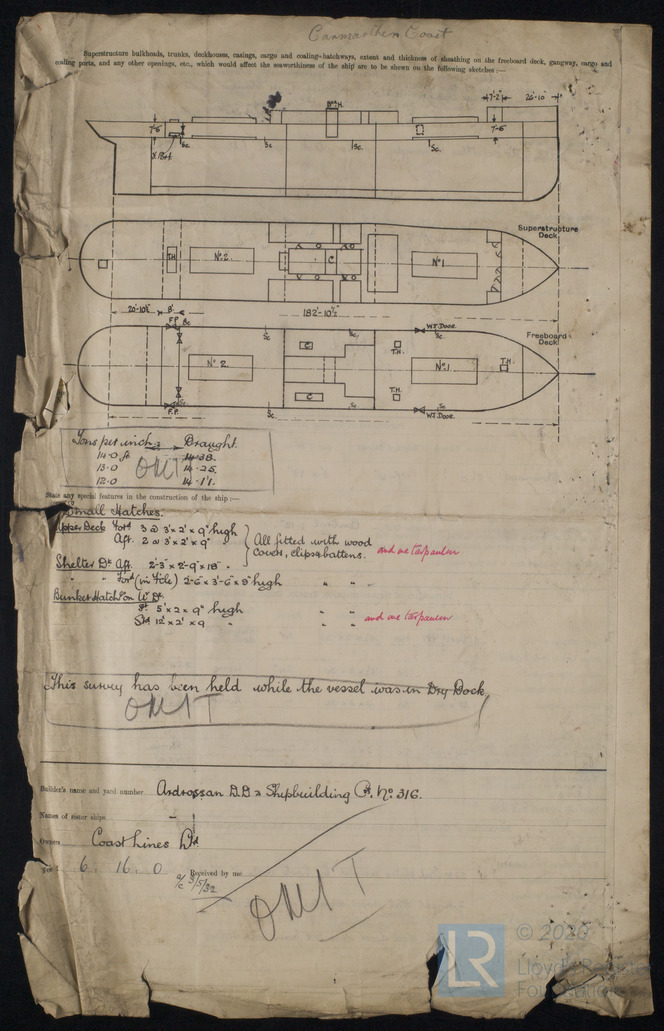 Carmarthen Coast
Superstructure bulkheads, trunks, deckhouses, casings, cargo and coaling-hatchways, extent and thickness of sheathing on the freeboard deck, gangway, cargo and
coaling ports, and any other openings, etc., which would affect the seaworthiness of the ship are to be shown on the following sketches:—
7'-2" 26'-10"
7'-6" 7'-6"
Sc. Sc. Sc. Sc.
Superstructure
Deck.
T.H. No. 2. C No. 1.
20'-10½" 8' 182'-10½"
F.P. Sc. Sc. Sc. W.T. Door. Sc.
Freeboard
Deck.
No. 2. C T.H. No. 1. T.H.
C T.H.
F.P. Sc. Sc. Sc. Sc.
W.T. Door.
Tons per inch Draught.
14.0 ft 14.38
13.0 14.25
12.0 14.11
OMIT
State any special features in the construction of the ship:—
Small Hatches.
Upper Deck Ford 3 @ 3' x 2' x 9" high
Aft. 2 @ 3' x 2' x 9"
All fitted with wood
covers, clips & battens. and one tarpaulin
Shelter Dk Aft. 2-3 x 2-9" x 18" "
" " Ford (in Fcle) 2-6 x 3'-6 x 9" high " " "
Bunker Hatch on Up Dk.
Pt. 5' x 2 x 9" high " "
Std 12' x 2' x 9 " " " and one tarpaulin
This survey has been held while the vessel was in Dry Dock.
OMIT
Builder's name and yard number Ardrossan D.D & Shipbuilding Co. No. 316.
Names of sister ships -
Owners Coast Lines Ltd
Fee £ 6 . 16 . 0 Received by me
a/c 3/5/32
OMIT
LR
© 2020
Lloyd's Register
Foundation